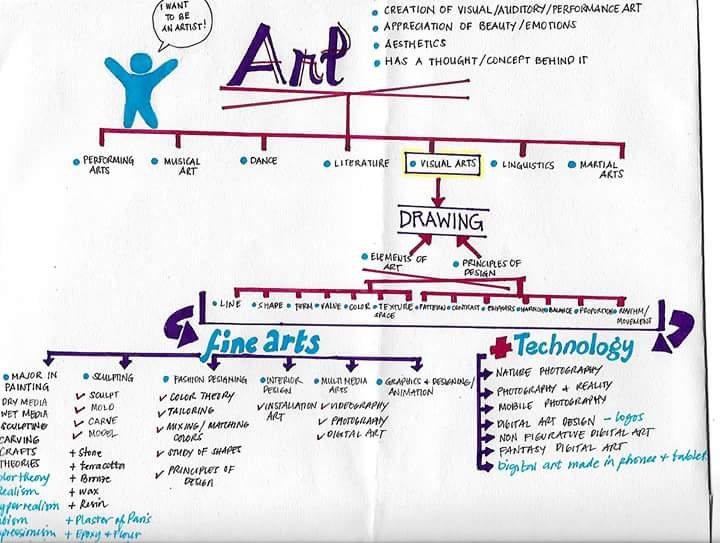 I WANT
TO BE
AN ARTIST!
Art
CREATION OF VISUAL/AUDITORY/PERFORMANCE ART
APPRECIATION OF BEAUTY/EMOTIONS
AESTHETICS
HAS A THOUGHT/CONCEPT BEHIND IT
PERFORMING
ARTS
MUSICAL
ART
DANCE
LITERATURE
VISUAL ARTS
LINGUISTICS
MARTIAL
ARTS
DRAWING
ELEMENTS OF
ART
PRINCIPLES OF
DESIGN
LINE
SHAPE
FORM
VALUE
COLOR
TEXTURE
SPACE
PATTERN
CONTRAST
EMPHASIS
HARMONY
BALANCE
PROPORTION
RHYTHM/
MOVEMENT
fine arts
MAJOR IN
PAINTING
DRY MEDIA
WET MEDIA
SCULPTING
CARVING
CRAFTS
THEORIES
olor theory
Realism
yper realism
bism
pressionism
SCULPTING
SCULPT
MOLD
CARVE
MODEL
+ Stone
+ terracotta
+ Bronze
+ wax
+ Resin
+ Plaster of Paris
+ Epoxy + Flour
FASHION DESIGNING
COLOR THEORY
TAILORING
MIXING/MATCHING
COLORS
STUDY OF SHAPES
PRINCIPLES OF
DESIGN
INTERIOR
DESIGN
INSTALLATION
ART
MULTIMEDIA
ARTS
VIDEOGRAPHY
PHOTOGRAPHY
DIGITAL ART
GRAPHICS + DESIGNING/
ANIMATION
+ Technology
NATURE PHOTOGRAPHY
PHOTOGRAPHY + REALITY
MOBILE PHOTOGRAPHY
DIGITAL ART DESIGN - logos
NON FIGURATIVE DIGITAL ART
FANTASY DIGITAL ART
Digital art made in phones + tablet